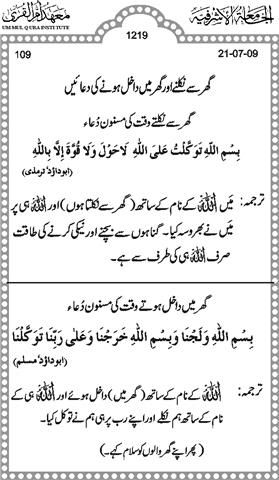 معہد اُمُّ القُریٰ
UMMUL QURA INSTITUTE
الجامعۃ الاشرفیہ
1219
109
21-07-09
گھر سے نکلنے اور گھر میں داخل ہونے کی دعائیں
گھر سے نکلتے وقت کی مسنون دُعاء
بِسْمِ اللّٰهِ تَوَكَّلْتُ عَلَى اللّٰهِ لَاحَوْلَ وَلَا قُوَّةَ اِلَّا بِاللّٰهِ
(ابوداؤد، ترمذی)
ترجمہ: میں اللہ کے نام کے ساتھ (گھر سے نکلتا ہوں) اور اللہ ہی پر
میں نے بھروسہ کیا۔ گناہوں سے بچنے اور نیکی کرنے کی طاقت
صرف اللہ ہی کی طرف سے ہے۔
گھر میں داخل ہوتے وقت کی مسنون دعاء
بِسْمِ اللّٰهِ وَلَجْنَا وَبِسْمِ اللّٰهِ خَرَجْنَا وَعَلٰى رَبِّنَا تَوَكَّلْنَا
(ابوداؤد، مسلم)
ترجمہ: اللہ کے نام کے ساتھ ہم (گھر میں) داخل ہوئے اور اللہ ہی کے
نام کے ساتھ ہم نکلے اور اپنے رب پر ہی ہم نے توکل کیا۔
(پھر اپنے گھر والوں کو سلام کہے۔)